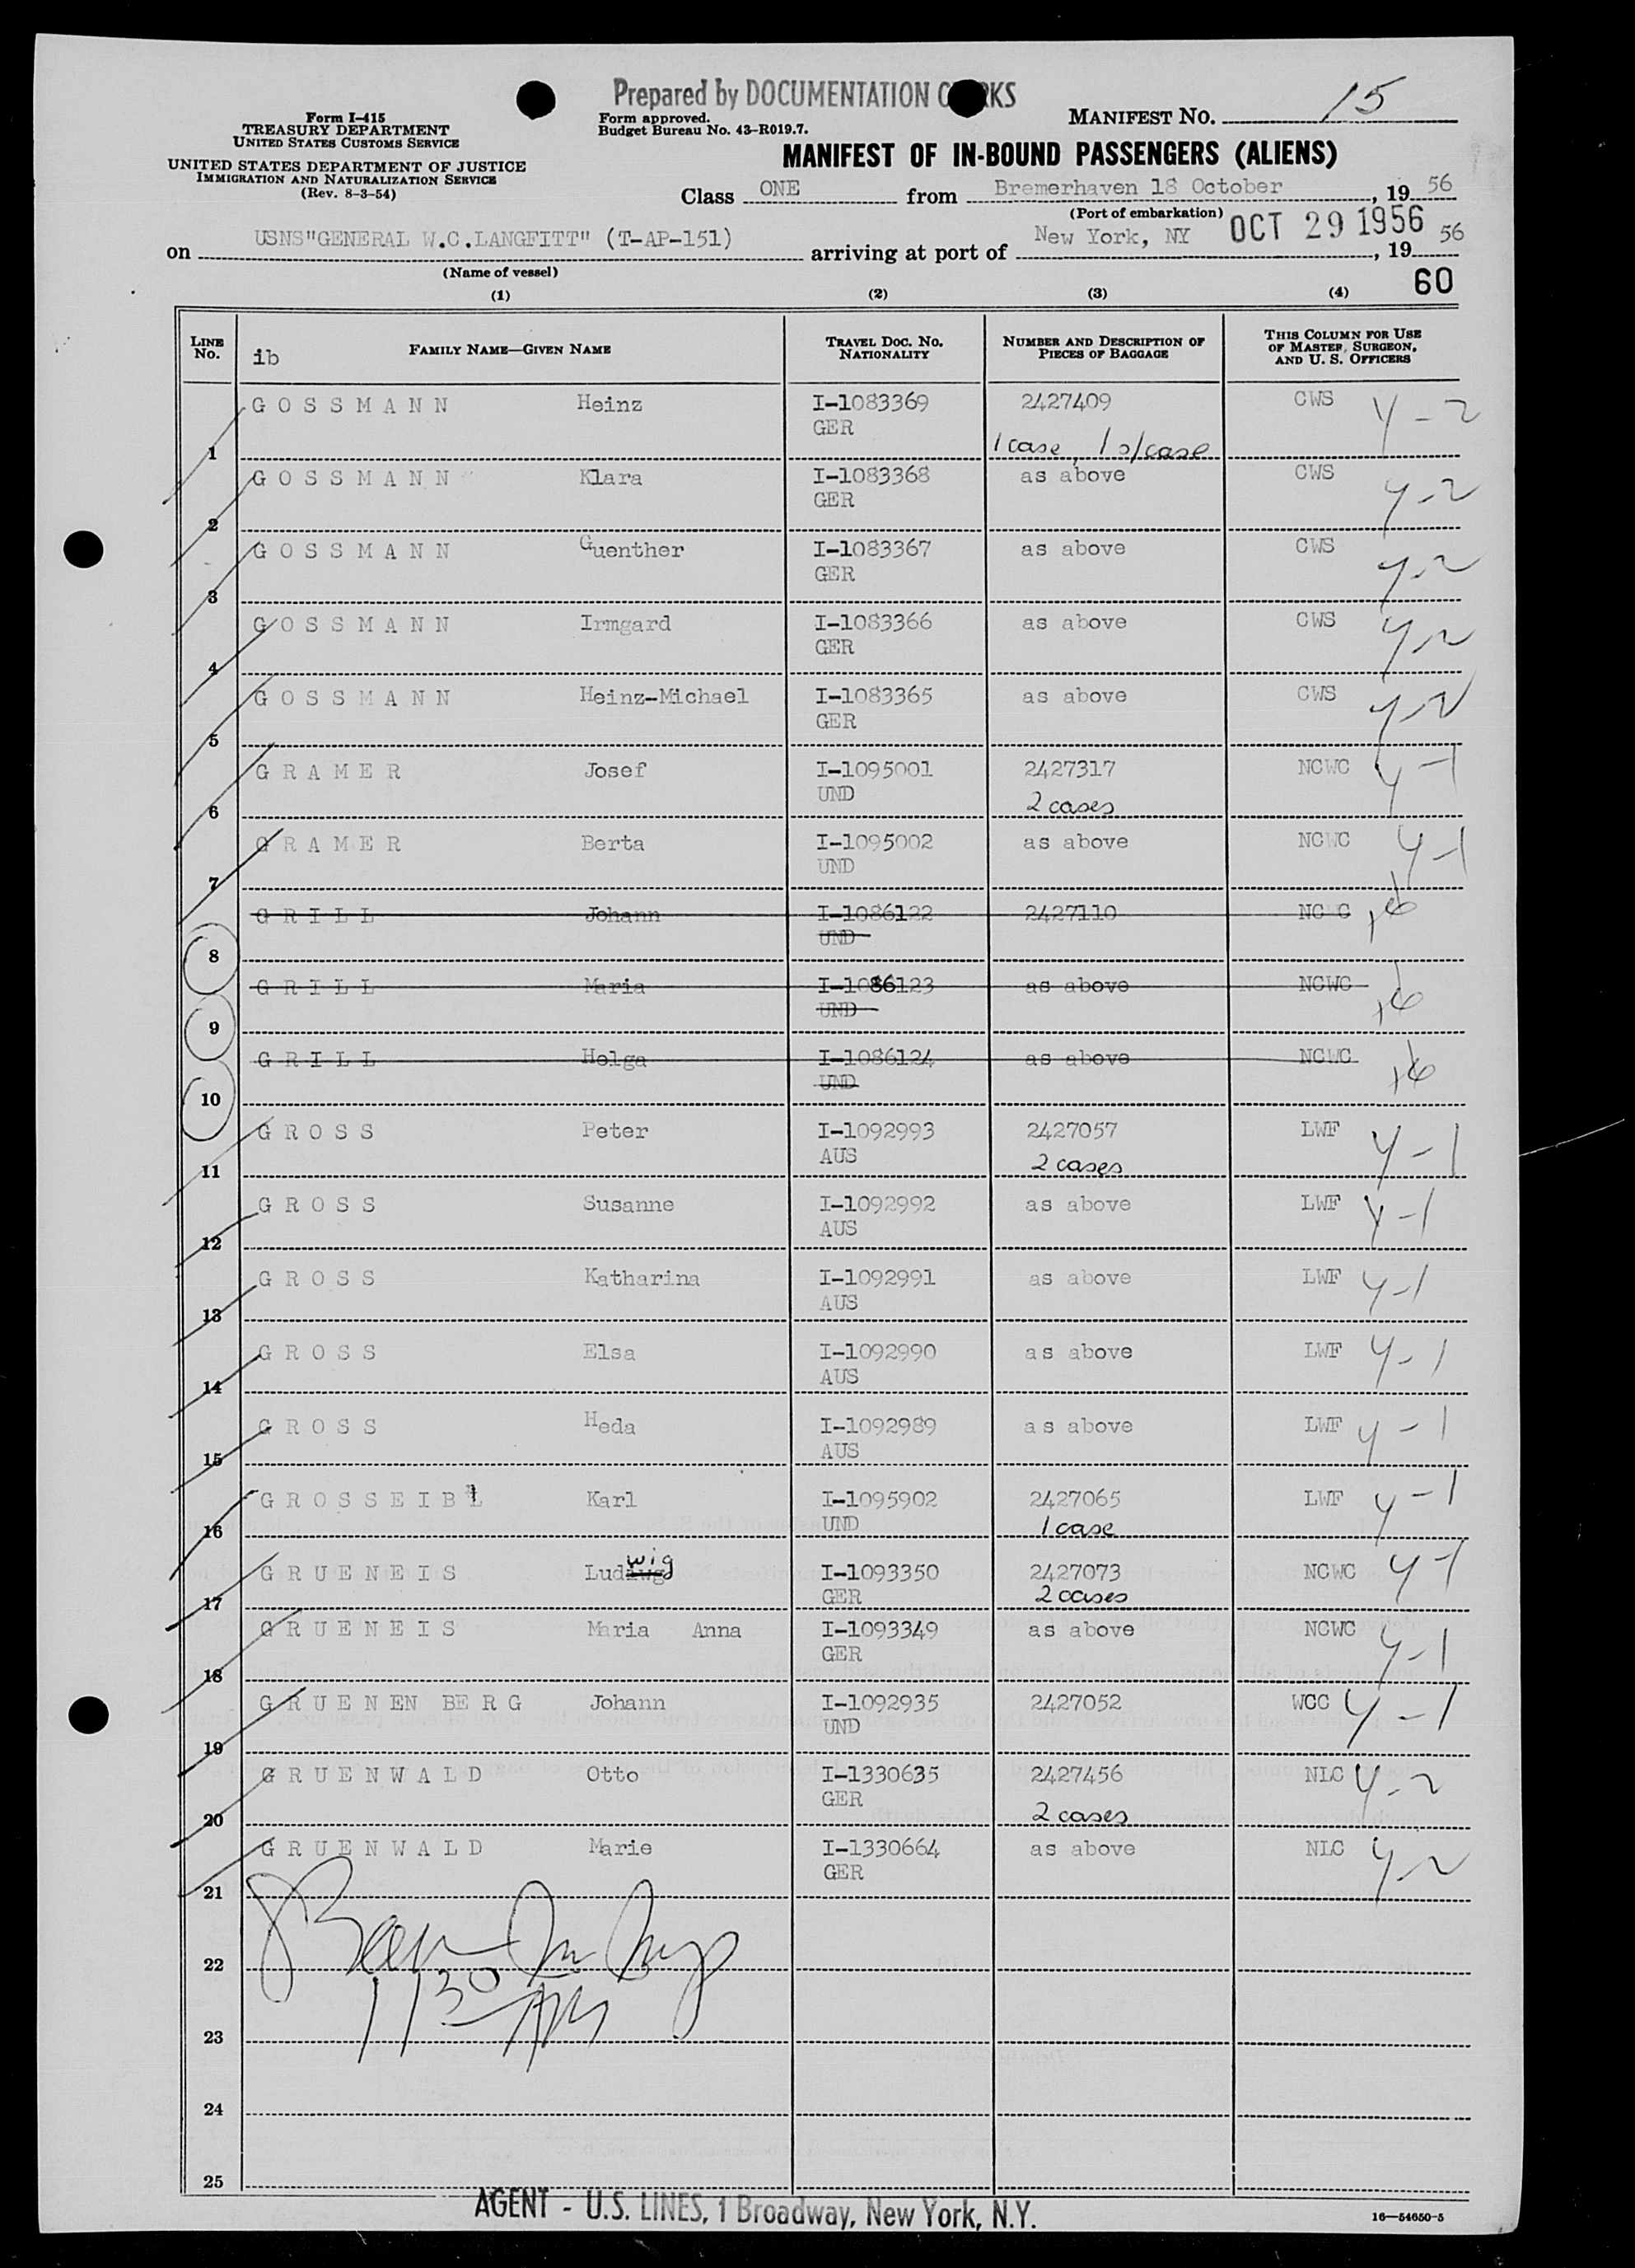 Prepared by DOCUMENTATION C RKS
Form I-415
TREASURY DEPARTMENT
UNITED STATES CUSTOMS SERVICE
UNITED STATES DEPARTMENT OF JUSTICE
IMMIGRATION AND NATURALIZATION SERVICE
(Rev. 8-3-54)
Form approved.
Budget Bureau No. 43-R019.7.
MANIFEST NO. 15
MANIFEST OF IN-BOUND PASSENGERS (ALIENS)
Class ONE from Bremerhaven 18 October, 19 56
(Port of embarkation)
on USNS"GENERAL W.C.LANGFITT" (T-AP-151) arriving at port of New York, NY OCT 29 1956, 19 56
(Name of vessel)
60
(1) (2) (3) (4)
LINE NO. ib FAMILY NAME—GIVEN NAME TRAVEL DOC. NO. NATIONALITY NUMBER AND DESCRIPTION OF PIECES OF BAGGAGE THIS COLUMN FOR USE OF MASTER, SURGEON, AND U. S. OFFICERS
GOSSMANN Heinz I-1083369 2427409 CWS Y-2
GER
1 1 case, 1 s/case
GOSSMANN Klara I-1083368 as above CWS Y-2
GER
2
GOSSMANN Guenther I-1083367 as above CWS Y-2
GER
3
GOSSMANN Irmgard I-1083366 as above CWS Y-2
GER
4
GOSSMANN Heinz-Michael I-1083365 as above CWS Y-2
GER
5
GRAMER Josef I-1095001 2427317 NCWC Y-1
UND
6 2 cases
GRAMER Berta I-1095002 as above NCWC Y-1
UND
7
GRILL Johann I-1086122 2427110 NC C
UND
8
GRILL Maria I-1086123 as above NCWC
UND
9
GRILL Helga I-1086124 as above NCWC
UND
10
GROSS Peter I-1092993 2427057 LWF Y-1
AUS 2 cases
11
GROSS Susanne I-1092992 as above LWF Y-1
AUS
12
GROSS Katharina I-1092991 as above LWF Y-1
AUS
13
GROSS Elsa I-1092990 as above LWF Y-1
AUS
14
GROSS Heda I-1092989 as above LWF Y-1
AUS
15
GROSSEIBL Karl I-1095902 2427065 LWF Y-1
UND 1 case
16
GRUENEIS Ludwig I-1093350 2427073 NCWC Y-1
GER 2 cases
17
GRUENEIS Maria Anna I-1093349 as above NCWC Y-1
GER
18
GRUENENBERG Johann I-1092935 2427052 WCC Y-1
UND
19
GRUENWALD Otto I-1330635 2427456 NLC Y-2
GER
20 2 cases
GRUENWALD Marie I-1330664 as above NLC Y-2
GER
21
22
1130 AM
23
24
25
AGENT - U.S. LINES, 1 Broadway, New York, N.Y.
16—54650-5